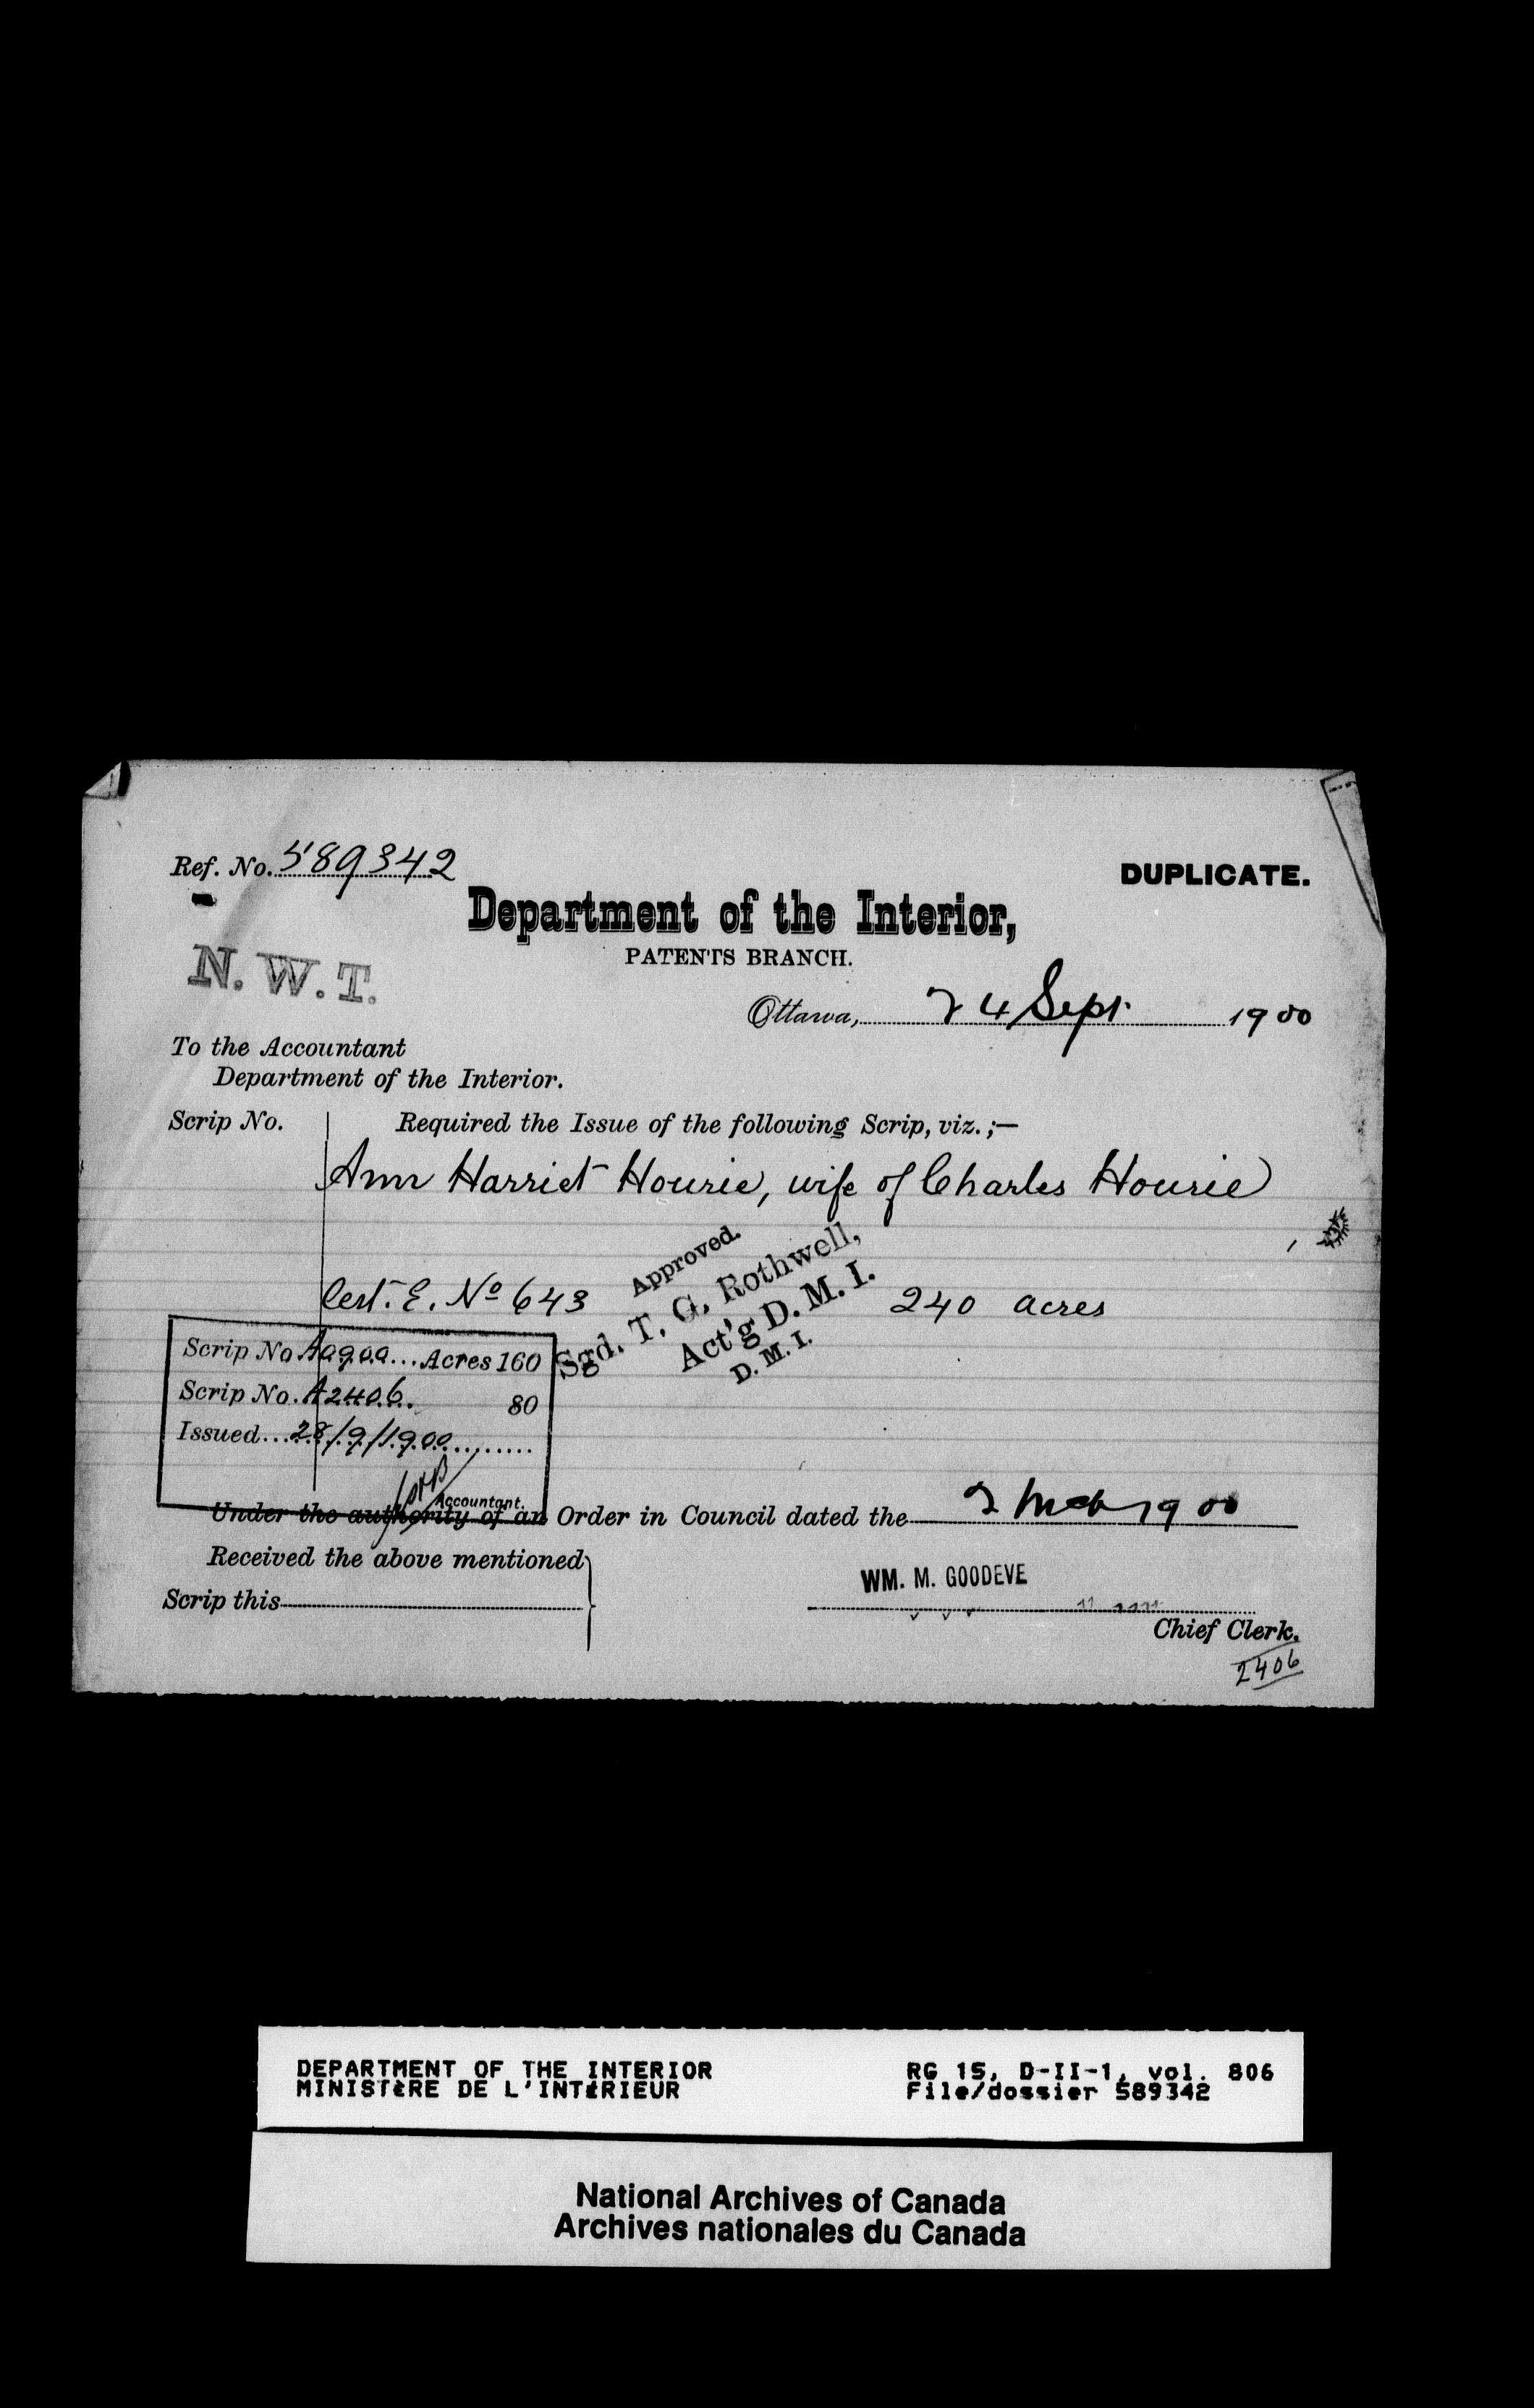 Ref. No. 589342
DUPLICATE.
Department of the Interior,
PATENTS BRANCH.
N. W. T.
Ottawa, 24 Sept. 1900
To the Accountant
Department of the Interior.
Scrip No. Required the Issue of the following Scrip, viz.;—
Ann Harriet Hourie, wife of Charles Hourie
Approved.
Sgd. T. G. Rothwell,
Act'g D. M. I.
D. M. I.
Cert. E. No 643 240 acres
Scrip No. Acres 160
Scrip No. A2406 80
Issued... 28/9/1900
Accountant.
Under the authority of an Order in Council dated the 2 Mch 1900
Received the above mentioned
Scrip this
WM. M. GOODEVE
Chief Clerk.
2406
DEPARTMENT OF THE INTERIOR
MINISTÈRE DE L'INTÉRIEUR
RG 15, D-II-1, vol. 806
File/dossier 589342
National Archives of Canada
Archives nationales du Canada